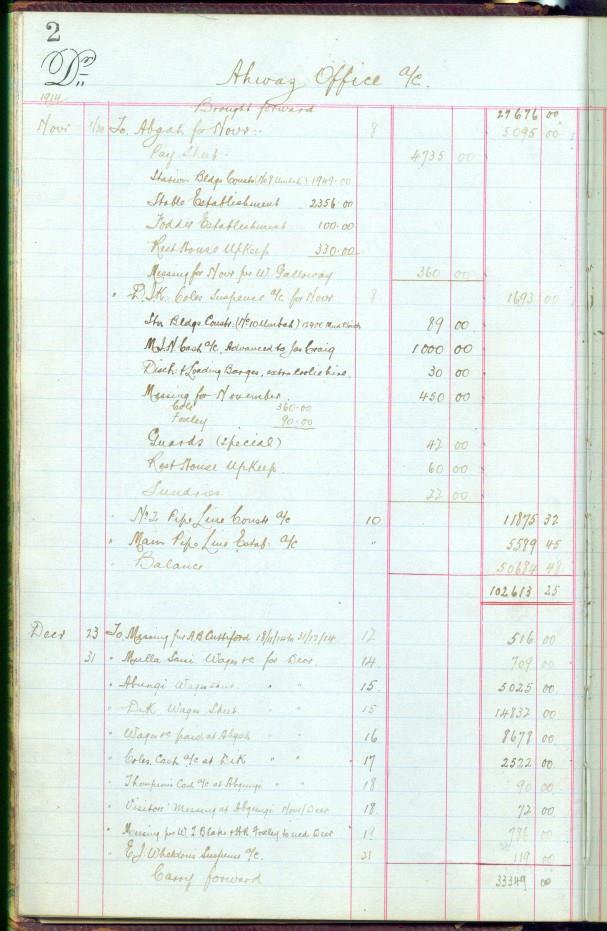 2
Dr
Ahwaz Office a/c.
1914
Brought forward 27676 00
Novr 1/30 To Abgah for Novr: 8 5095 00
Pay Sheet 4735 00
Station Bldgs Constn (No 9 Umbah) 1949.00
Stable Establishment 2356.00
Fodder Establishment 100.00
Rest House Upkeep 330.00
Messing for Novr for W. Galloway 360 00
" D.I.K. Coles Suspense a/c for Novr 8 1693 00
Stn Bldgs Constn: (No 10 Umbah) 13400 Mud Bricks 89 00
M.I.N Cash a/c, Advanced to Jas Craig 1000 00
Disch: & Loading Barges, extra coolie hire 30 00
Messing for November 450 00
Cole 360.00
Foxley 90.00
Guards (special) 42 00
Rest House Upkeep 60 00
Sundries 22 00
" No 2 Pipe Line Constn a/c 10 11875 32
" Main Pipe Line Estab: a/c " 5589 45
" Balance 50684 48
102613 25
Decr 23 To Messing for A B 18/11/14 to 31/12/14 12 516 00
31 " Mulla Sani Wages &c for Decr. 14 709 00
" Abungi Wages " " 15 5025 00
" D.I.K Wages Sheet " " 15 14832 00
" Wages &c paid at Abgah " " 16 8678 00
" Coles Cash a/c at D.I.K " " 17 2522 00
" Thompson's Cash a/c at Abgungi " " 18 90 00
" Visitors' Messing at Abgungi Novr/Decr 18 72 00
" Messing for W. J. Blake & A.H. Foxley to end Decr 786 00
" E.J. Wheldons Suspense a/c. 21 119 00
Carry forward 33349 00